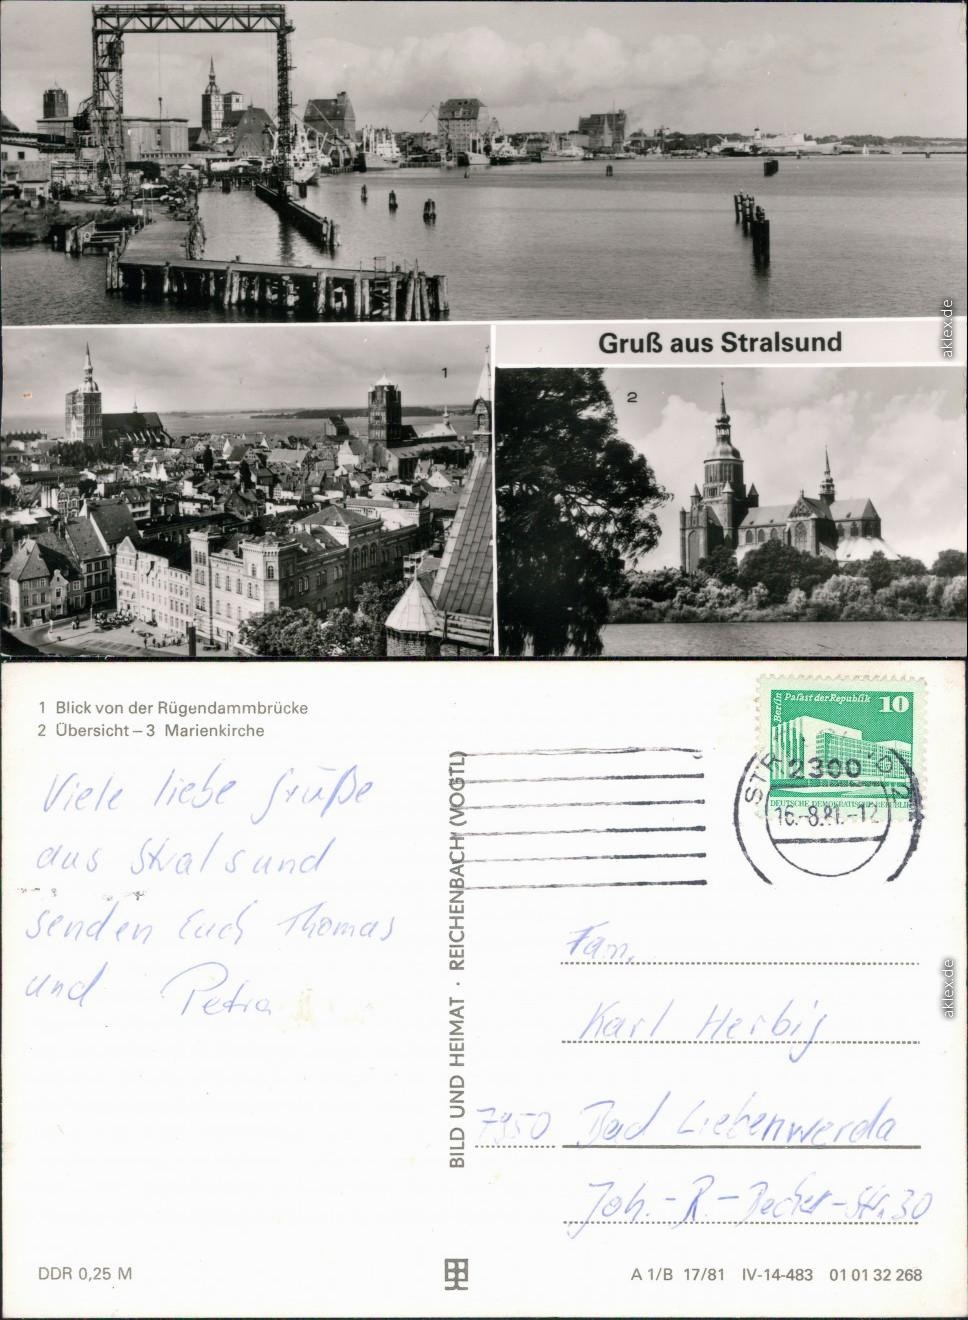 Gruß aus Stralsund
1
2
aklex.de
1 Blick von der Rügendammbrücke
2 Übersicht – 3 Marienkirche
Viele liebe Grüße
aus Stralsund
senden Euch Thomas
und Petra
BILD UND HEIMAT · REICHENBACH (VOGTL)
Berlin
Palast der Republik
10
DEUTSCHE DEMOKRATISCHE REPUBLIK
2300
16.-8.81.-12
Fam.
Karl Herbig
7950 Bad Liebenwerda
Joh.-R.-Becher-Str. 30
aklex.de
DDR 0,25 M
A 1/B 17/81 IV-14-483 01 01 32 268